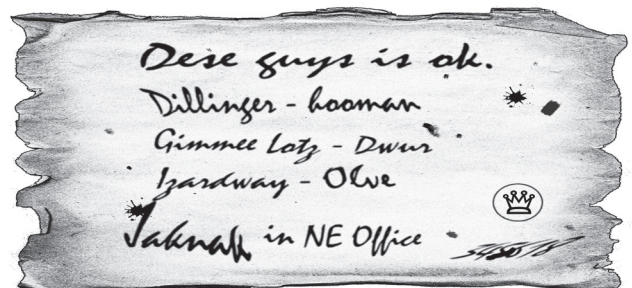 Dese guys is ok.
Dillinger - hooman
Gimmee Lotz - Dwur
Izardway - Olve
Jaknak in NE Office